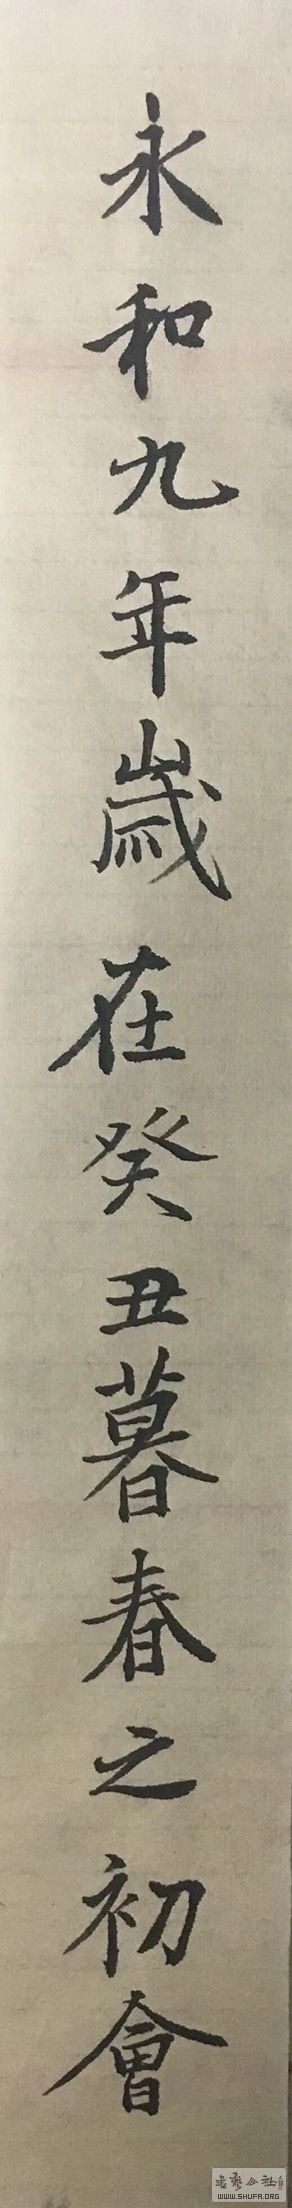 永和九年歲在癸丑暮春之初會
书艺公社
WWW.SHUFA.ORG